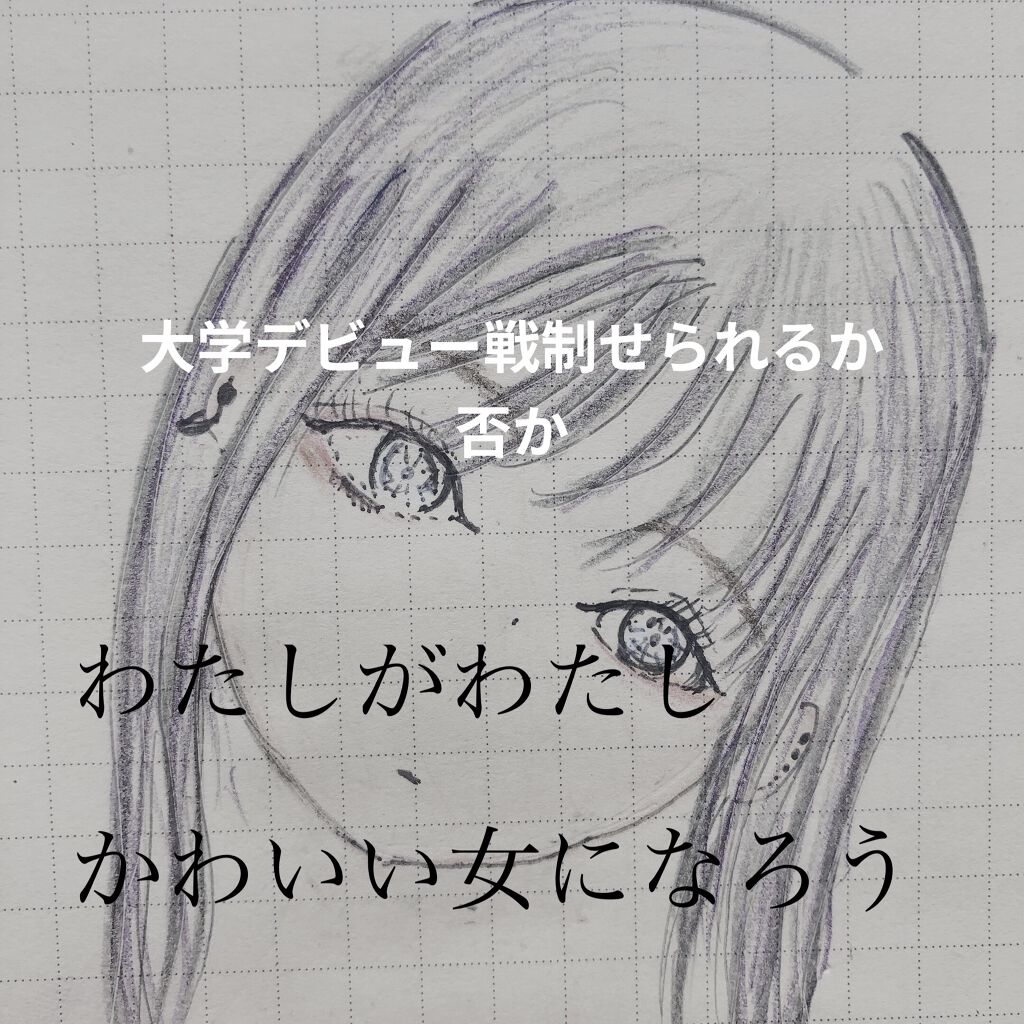 大学デビュー戦制せられるか
否か
わたしがわたし
かわいい女になろう